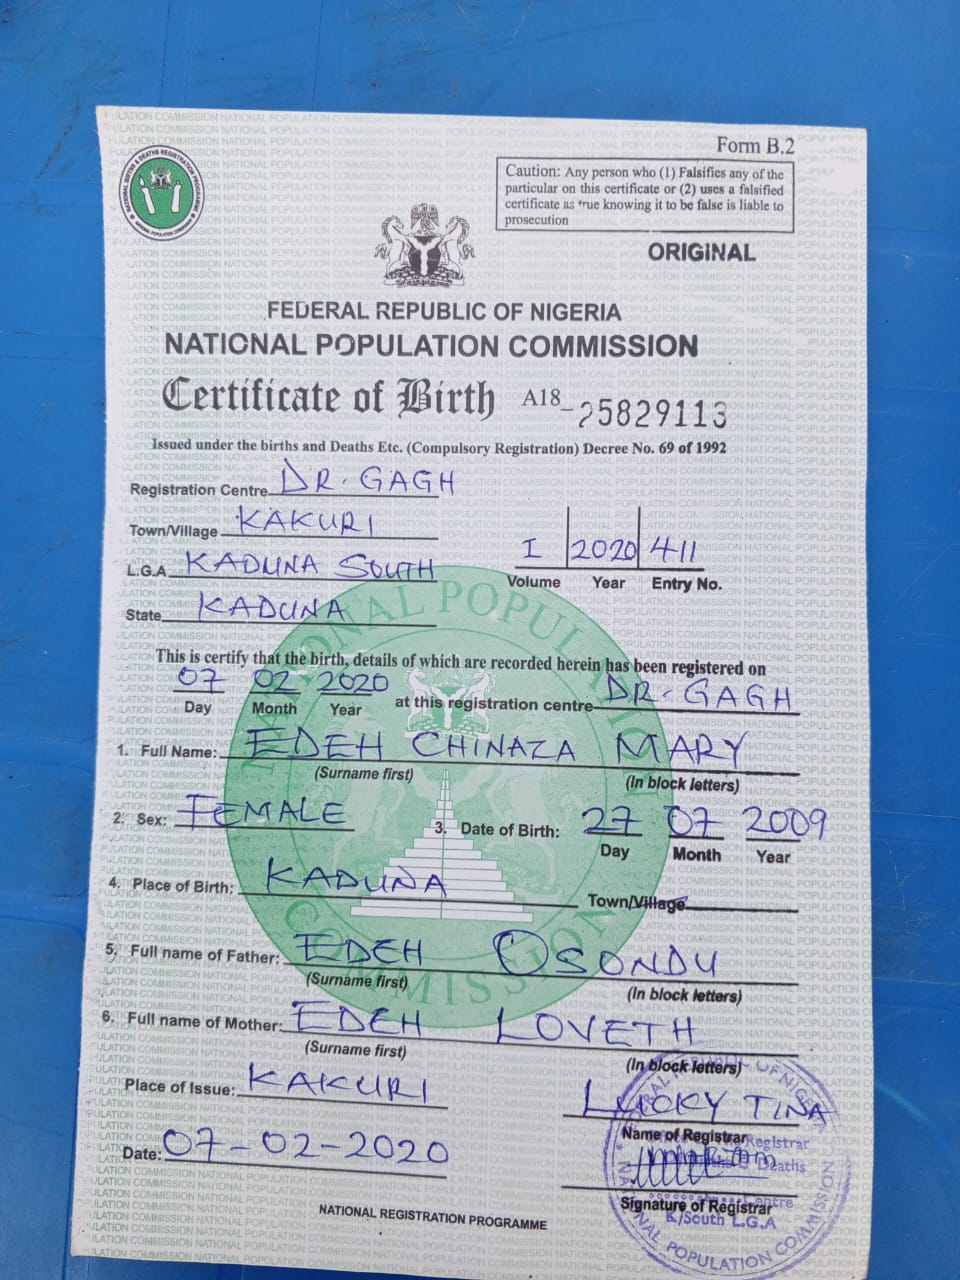 Form B.2
Caution: Any person who (1) Falsifies any of the
particular on this certificate or (2) uses a falsified
certificate as true knowing it to be false is liable to
prosecution
NATIONAL BIRTHS & DEATHS REGISTRATION PROGRAMME
NATIONAL POPULATION COMMISSION
ORIGINAL
FEDERAL REPUBLIC OF NIGERIA
NATIONAL POPULATION COMMISSION
Certificate of Birth A18-25829113
Issued under the births and Deaths Etc. (Compulsory Registration) Decree No. 69 of 1992
Registration Centre DR. GAGH
Town/Village KAKURI
I 2020 411
L.G.A KADUNA SOUTH
Volume Year Entry No.
State KADUNA
This is certify that the birth, details of which are recorded herein has been registered on
07 02 2020 at this registration centre DR. GAGH
Day Month Year
1. Full Name: EDEH CHINAZA MARY
(Surname first) (In block letters)
2. Sex: FEMALE 3. Date of Birth: 27 07 2009
Day Month Year
4. Place of Birth: KADUNA Town/Village
5. Full name of Father: EDEH OSONDU
(Surname first) (In block letters)
6. Full name of Mother: EDEH LOVETH
(Surname first) (In block letters)
Place of Issue: KAKURI LUCKY TINA
Name of Registrar
Date: 07-02-2020
Signature of Registrar
NATIONAL REGISTRATION PROGRAMME
Registrar
Deaths
Centre
K/South L.G.A
NATIONAL POPULATION COMMISSION